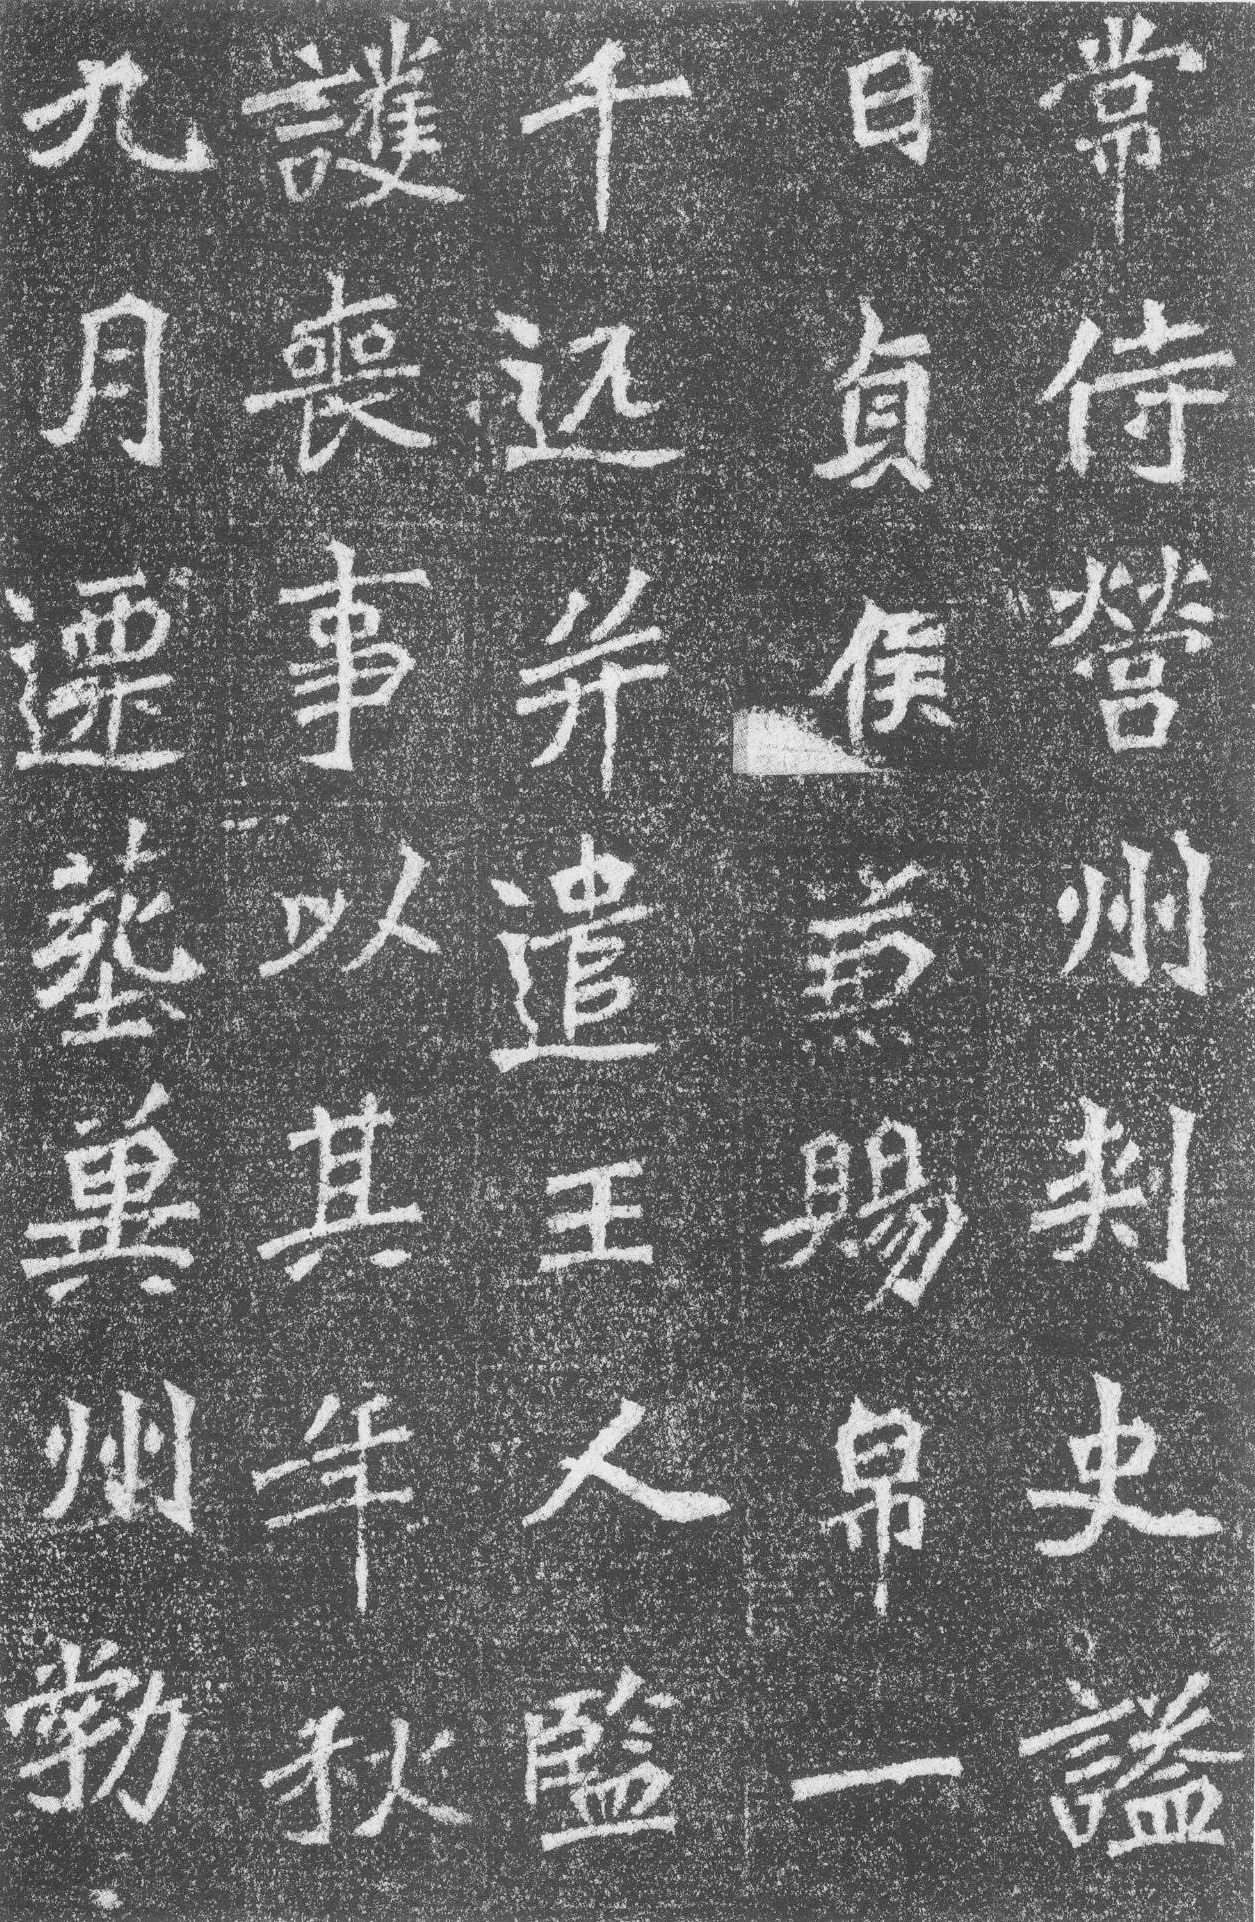 常侍營州刺史謚
日貞侯兼賜帛一
千匹并遣王人監
護喪事以其年秋
九月遷塟冀州勃